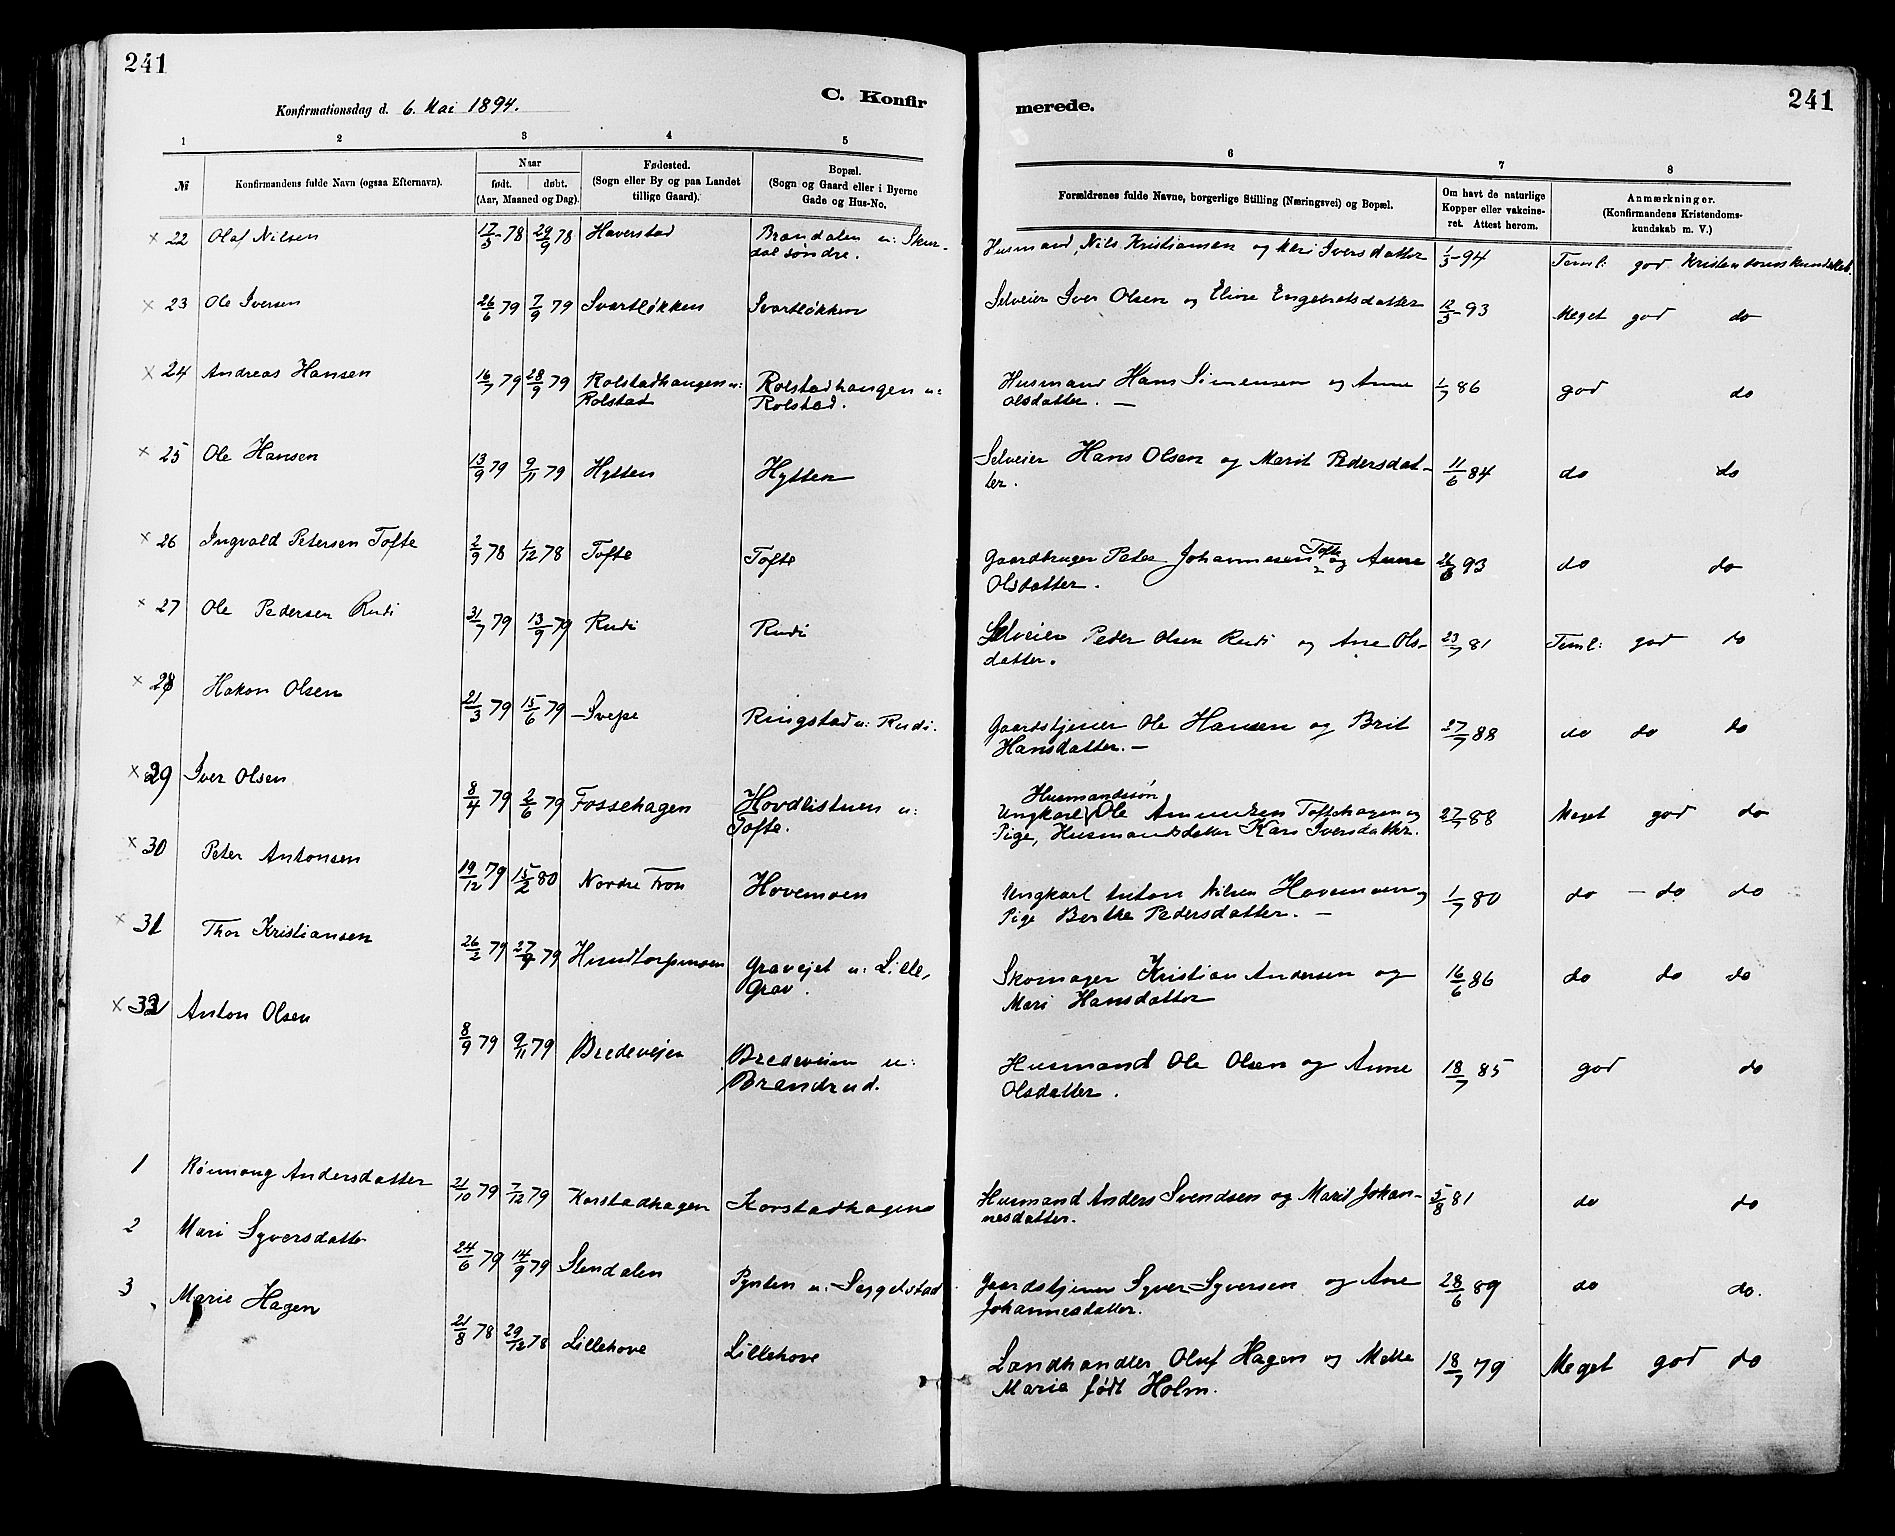 241
Konfirmationsdag d. 6. Mai 1894.
C. Konfir
merede.
241
1 2 3 4 5 6 7 8
№
Konfirmandens fulde Navn (ogsaa Efternavn).
Naar
født. døbt.
(Aar, Maaned og Dag).
Fødested.
(Sogn eller By og paa Landet
tillige Gaard).
Bopæl.
(Sogn og Gaard eller i Byerne
Gade og Hus-No.
Forældrenes fulde Navne, borgerlige Stilling (Næringsvei) og Bopæl.
Om havt de naturlige
Kopper eller vakcine-
ret. Attest herom.
Anmærkninger.
(Konfirmandens Kristendoms-
kundskab m. V.)
x 22 Olaf Nilsen 17/3-78 29/9 78 Haverstad Brandalen u: Skur-
dal søndre.
Husmand, Nils Kristiansen og Mari Iversdatter 1/3-94 Teml: god Kristendomskundskab.
x 23 Ole Iversen 26/6 79 7/9 79 Svartløkken Svartløkken
Selveier Iver Olsen og Eline Engebretsdatter 12/3-93 Meget god do
x 24 Andreas Hansen 16/7 79 28/9 79 Rolstadhaugen u: Rolstadhaugen u:
Rolstad Rolstad.
Husmand Hans Simensen og Anne 1/7 86 god do
Olsdatter. —
x 25 Ole Hansen 13/9 79 9/11 79 Hytten Hytten
Selveier Hans Olsen og Marit Pedersdat- 11/6 84 do do
ter.
x 26 Ingvald Petersen Tofte 2/9 78 1/12 78 Tofte Tofte
Gaardbruger Peter Johannesen Tofte og Anne 93 do do
Olsdatter.
x 27 Ole Pedersen Rudi 31/7 79 13/9 79 Rudi Rudi
Selveier Peder Olsen Rudi og Ane Ols- 23/7 81 Teml: god do
datter.
x 28 Hakon Olsen 21/3 79 15/6 79 Svepe Ringstad u: Rudi.
Gaardstjener Ole Hansen og Brit 27/7 88 do do do
Hansdatter. —
x 29 Iver Olsen 8/4 79 2/6 79 Fossehagen Hovdlistuen u:
Tofte.
Husmandssøn
Ungkarl Ole Amundsen Toftehagen og 27/7 88 Meget god do
Pige, Husmandsdatter Kari Iversdatter.
x 30 Peter Antonsen 19/12 79 15/2 80 Nordre Fron Hovemoen
Ungkarl Anton Nilsen Hovemoen og 1/7 80 do — do do
Pige Berthe Pedersdatter. —
x 31 Thor Kristiansen 26/2 79 27/4 79 Hundtorpmoen Gravejet u: Lille,
Grav.
Skomager Kristian Andersen og 16/6 86 do do do
Mari Hansdatter
x 32 Anton Olsen 8/9 79 9/11 79 Bredevejen Bredeveien u:
Brandrud.
Husmand Ole Olsen og Anne 18/7 85 god do
Olsdatter.
1 Rønnaug Andersdatter 21/10 79 7/12 79 Korstadhagen Korstadhagen
Husmand Anders Svendsen og Marit Johan- 5/8 81 do do
nesdatter.
2 Mari Syversdatter 24/6 79 14/9 79 Slendalen Pynten u: Seggelstad
Gaardstjener Syver Syversen og Ane 28/6 89 do do.
Johannesdatter.
3 Marie Hagen 21/8 78 29/12 78 Lillehove Lillehove
Landhandler Oluf Hagen og Mette 18/7 79 Meget god do
Marie født Holm.